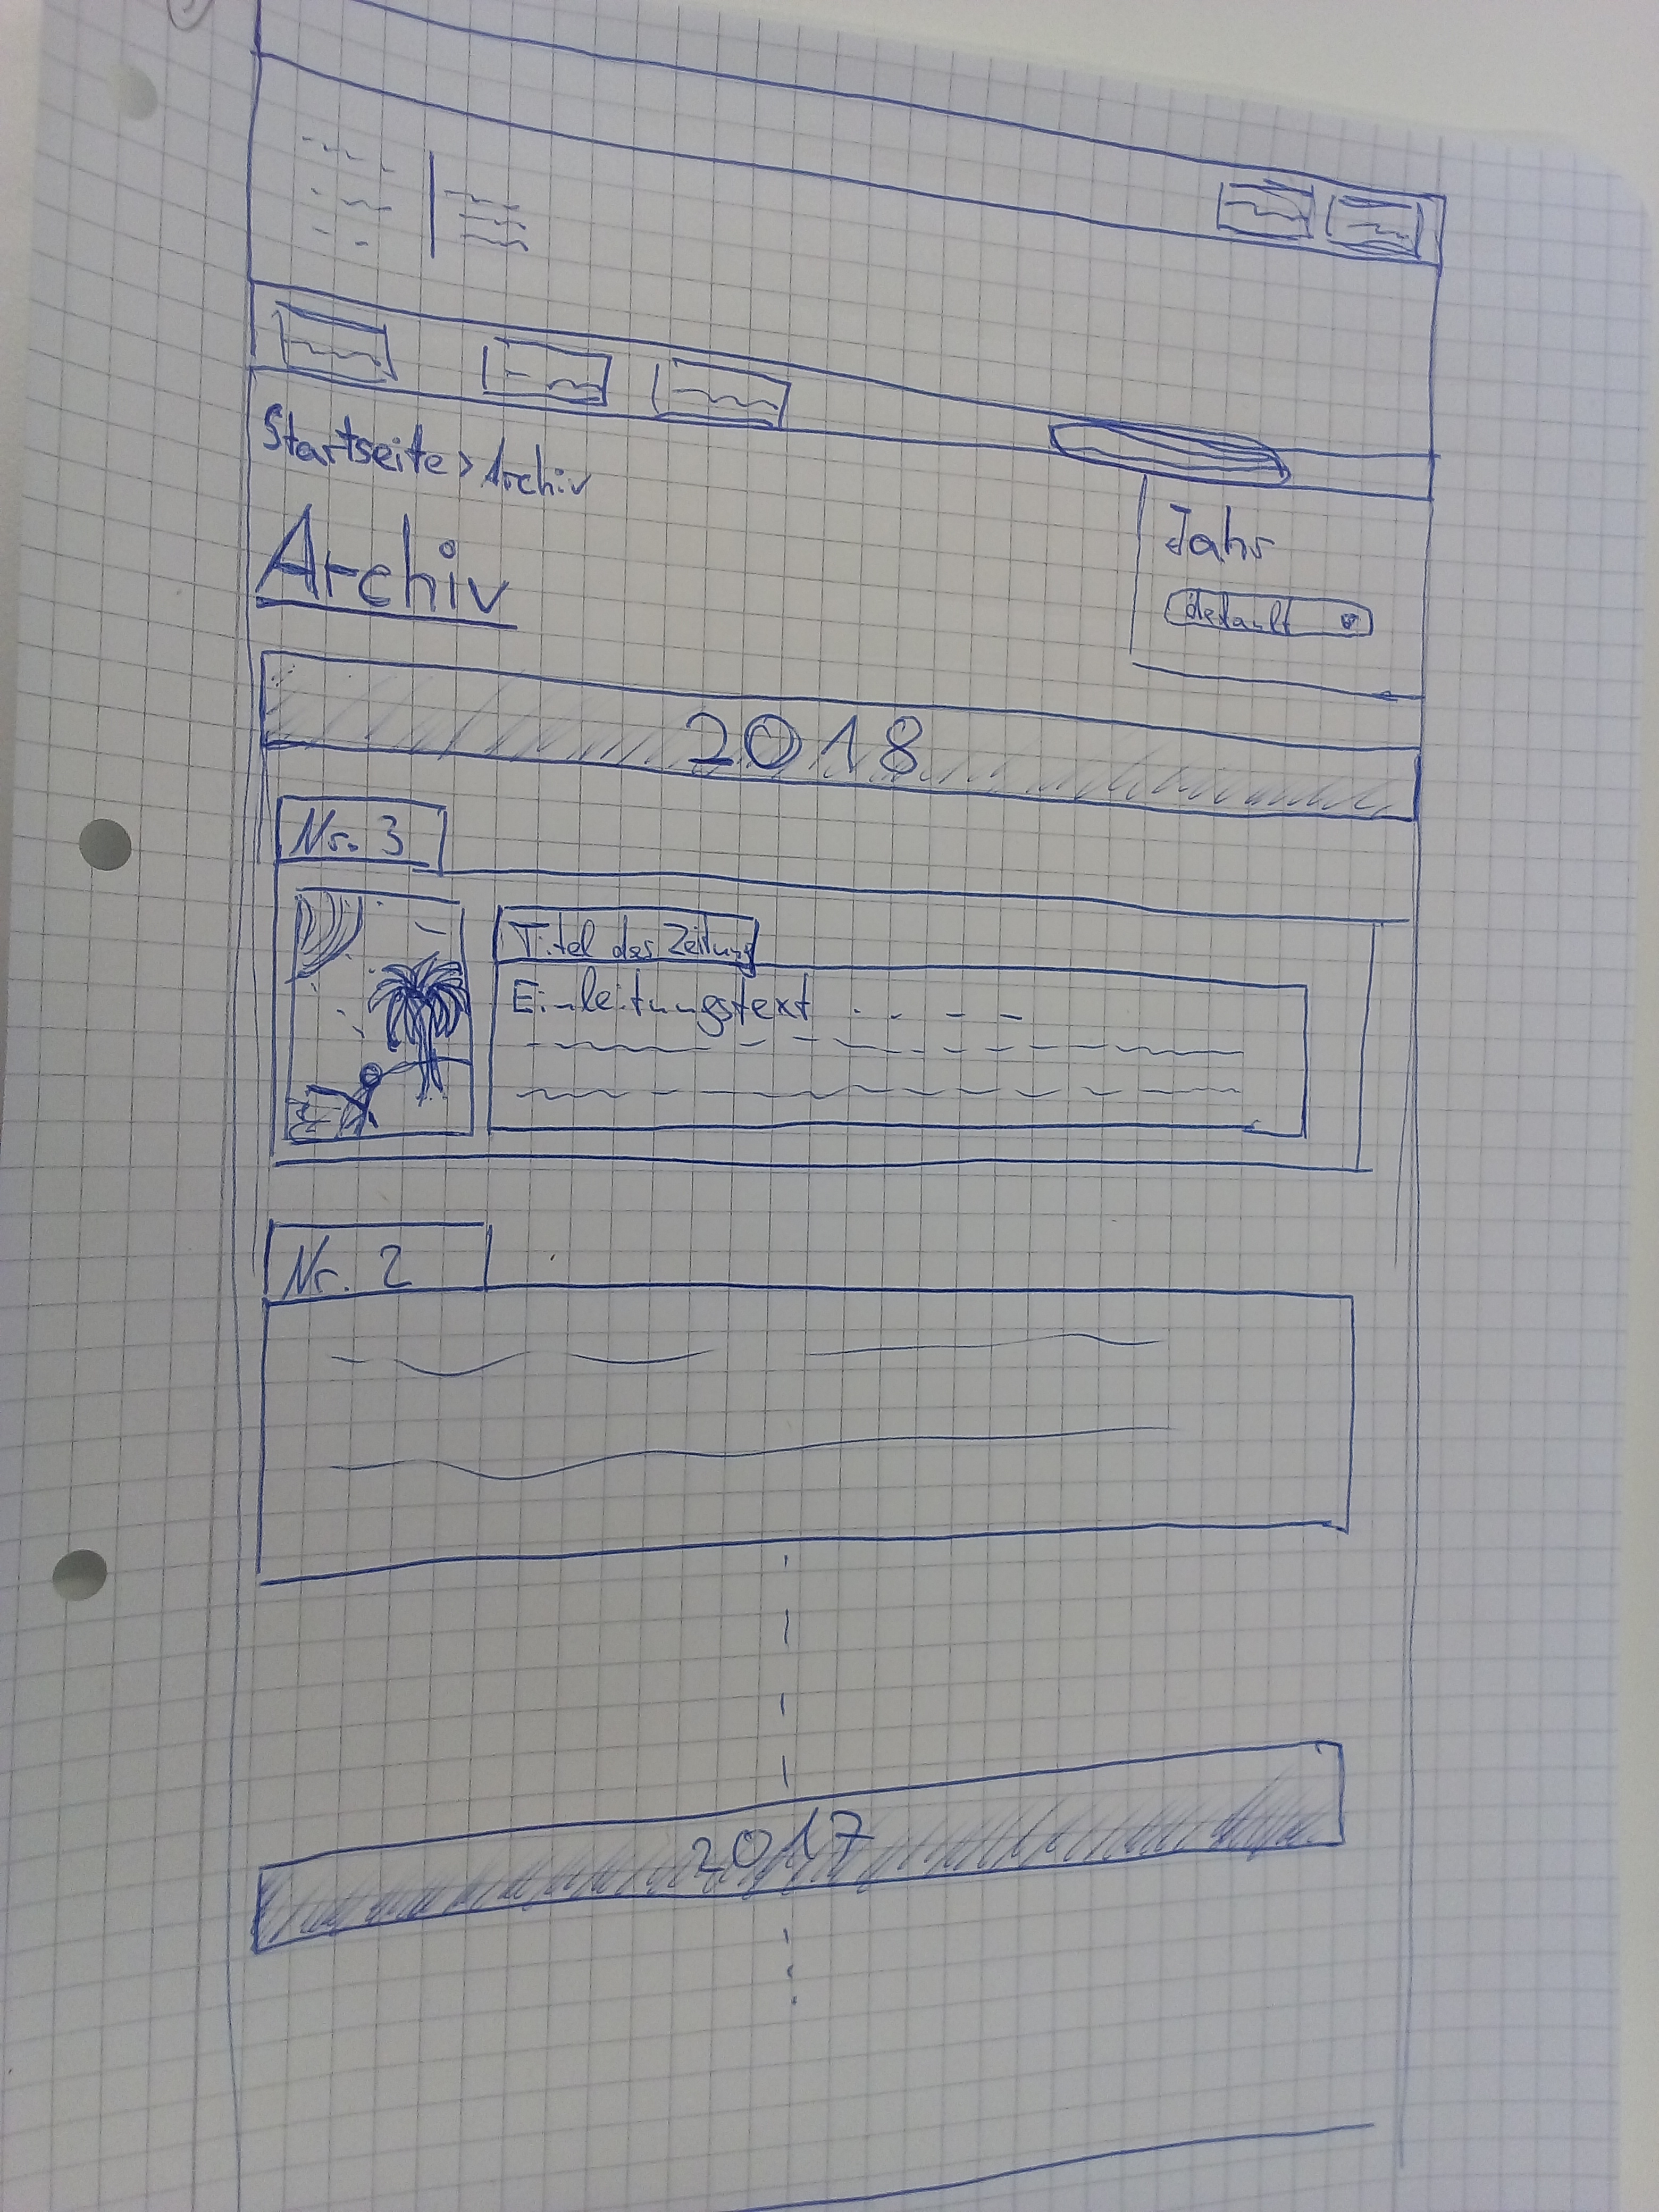 Startseite > Archiv
Archiv
Jahr
default
2018
Nr. 3
Titel der Zeitung
Einleitungstext
Nr. 2
2017